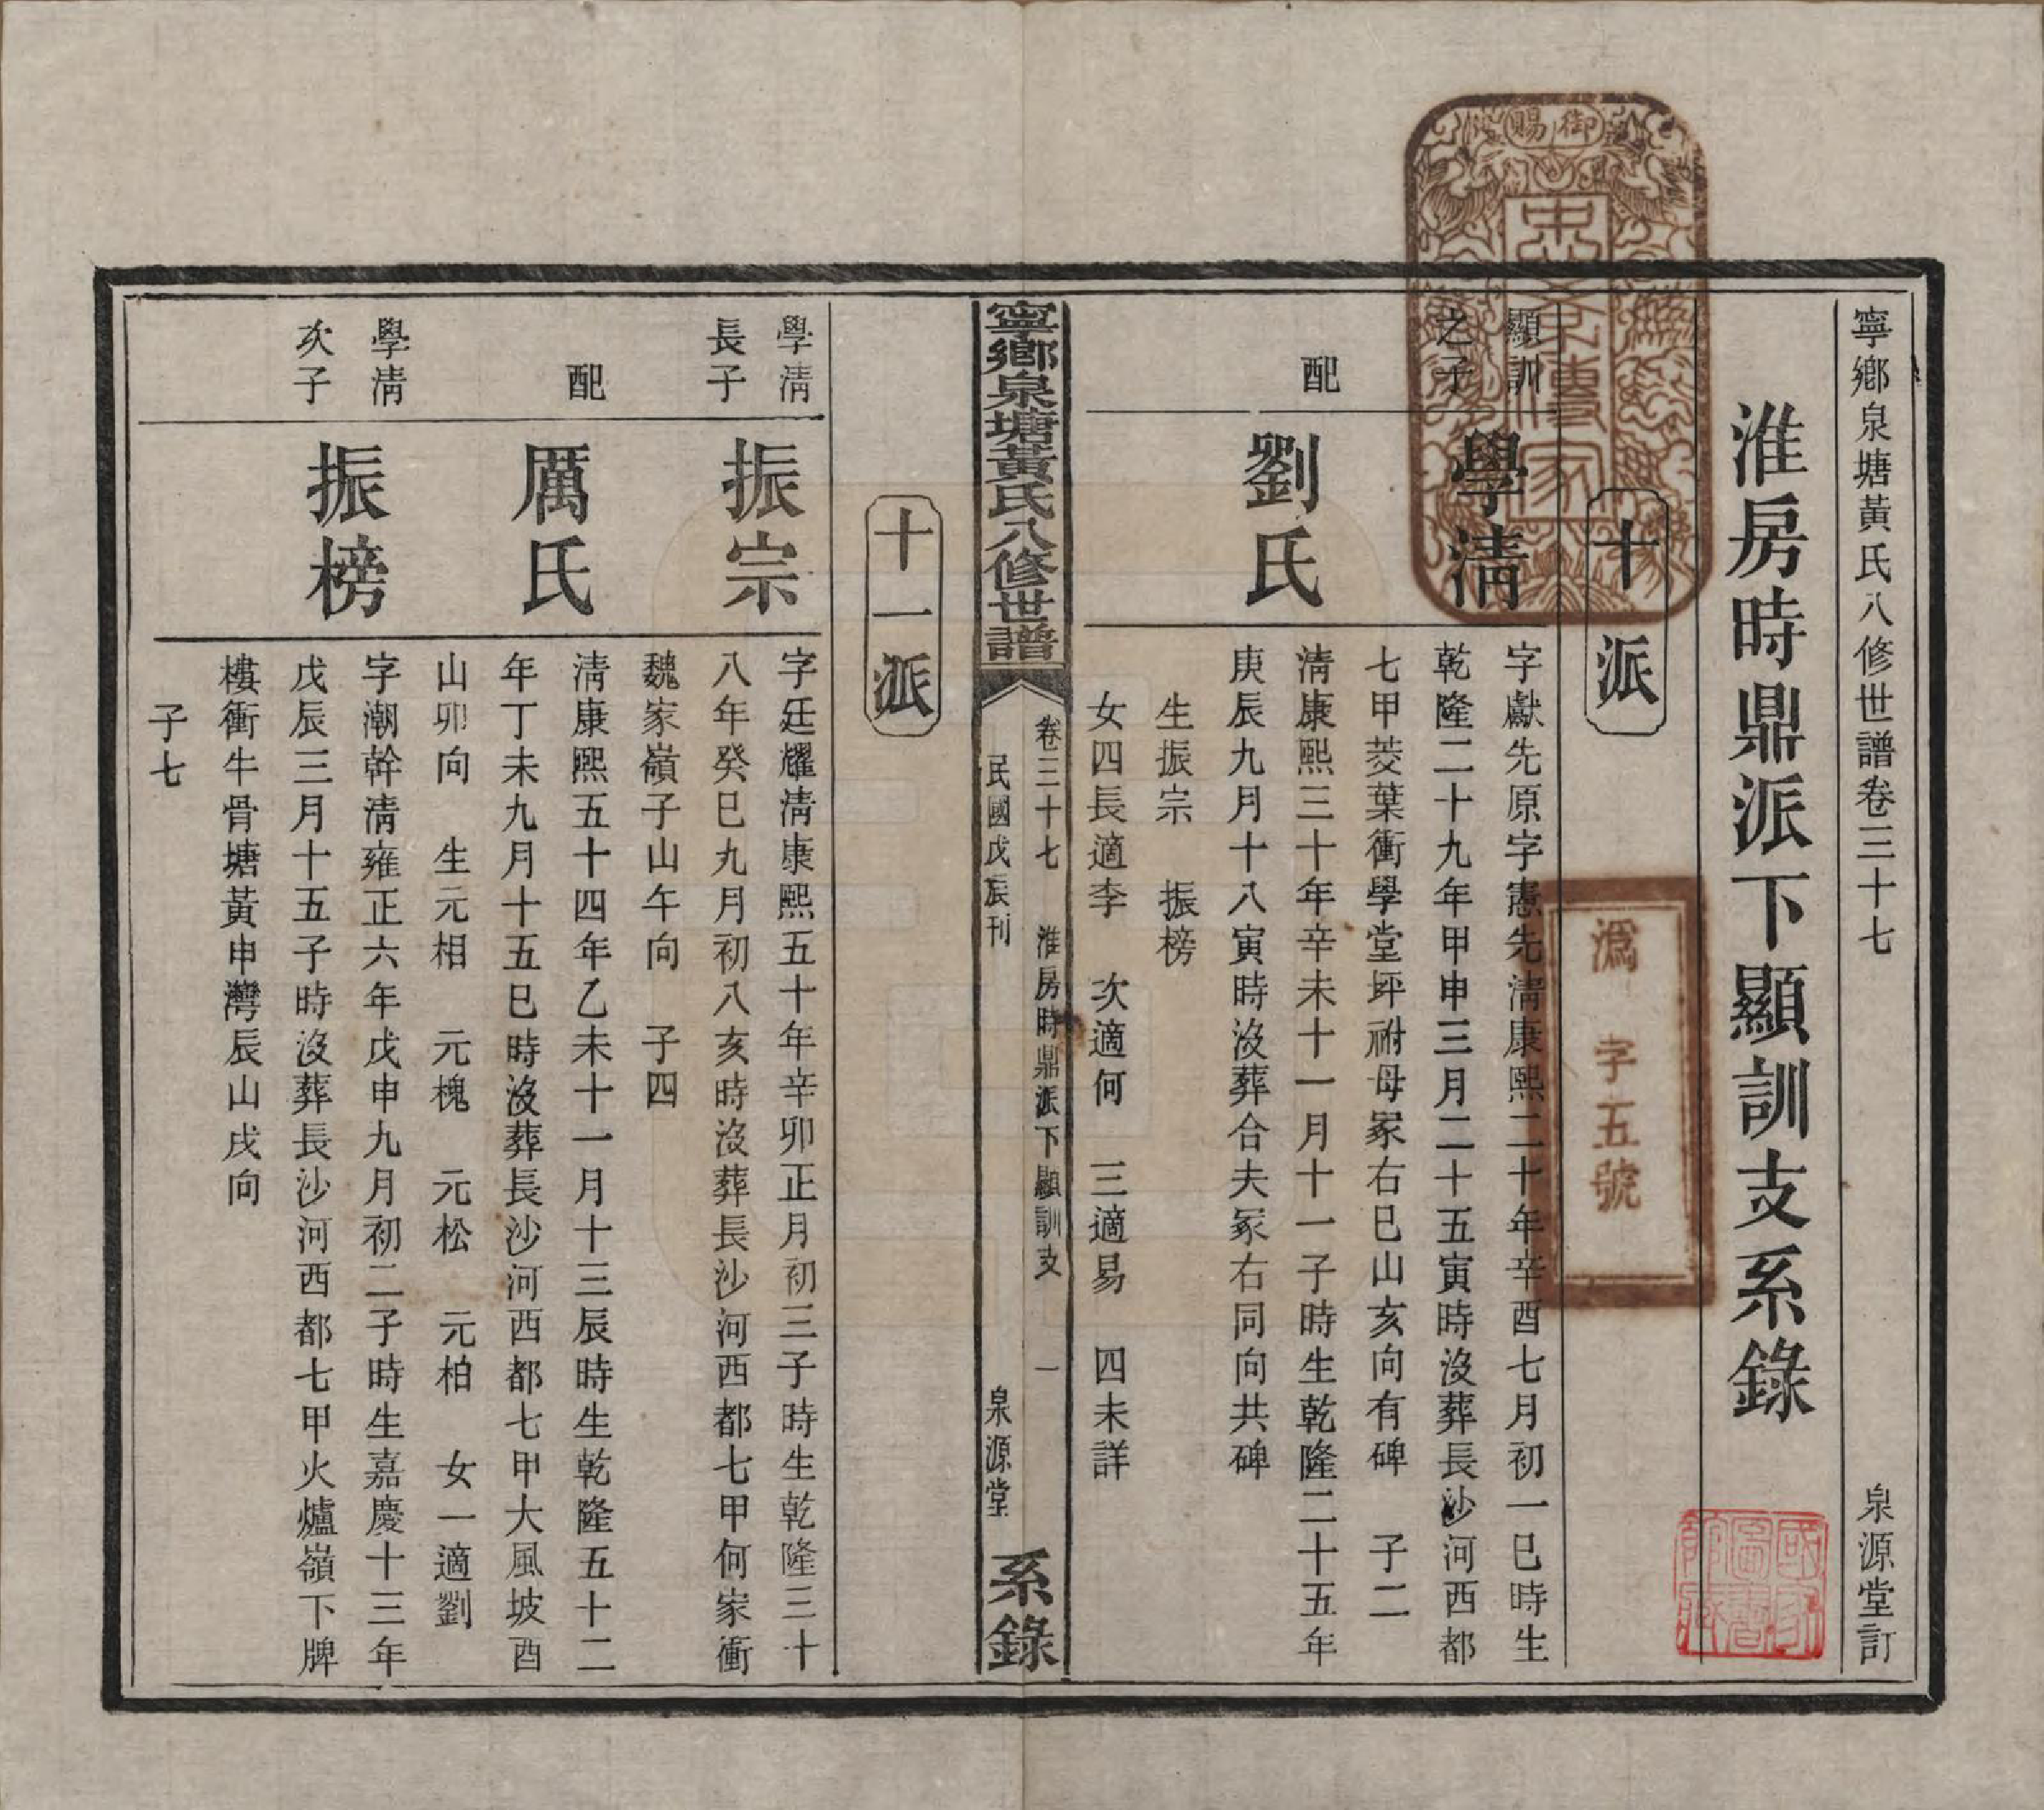 寧鄉泉塘黃氏八修世譜卷三十七
泉源堂訂
淮房時鼎派下顯訓支系錄
十派
顯訓
之子
學淸
字獻先原字憲先淸康熙二十年辛酉七月初一巳時生
乾隆二十九年甲申三月二十五寅時沒葬長沙河西都
七甲菱葉衝學堂坪祔母冢右巳山亥向有碑　子二
配
劉氏
淸康熙三十年辛未十一月十一子時生乾隆二十五年
庚辰九月十八寅時沒葬合夫冢右同向共碑
生振宗　振榜
女四長適李　次適何　三適易　四未詳
寧鄉泉塘黃氏八修世譜
卷三十七　淮房時鼎派下顯訓支　一
民國戊辰刊
泉源堂
系錄
十一派
學淸
長子
振宗
字廷耀淸康熙五十年辛卯正月初三子時生乾隆三十
八年癸巳九月初八亥時沒葬長沙河西都七甲何家衝
魏家嶺子山午向　子四
配
厲氏
淸康熙五十四年乙未十一月十三辰時生乾隆五十二
年丁未九月十五巳時沒葬長沙河西都七甲大風坡酉
山卯向　生元相　元槐　元松　元柏　女一適劉
學淸
次子
振榜
字潮幹淸雍正六年戊申九月初二子時生嘉慶十三年
戊辰三月十五子時沒葬長沙河西都七甲火爐嶺下牌
樓衝牛骨塘黃申灣辰山戌向
子七
御賜
忠孝傳家
溈字五號
國家圖書館藏